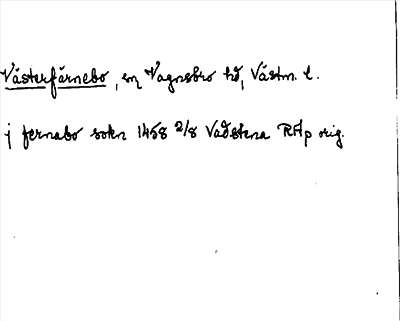 Västerfärnebo, sn, Vagnsbro hd, Västm. l.
j fernabo sokn 1458 2/8 Vadstena RAp orig.